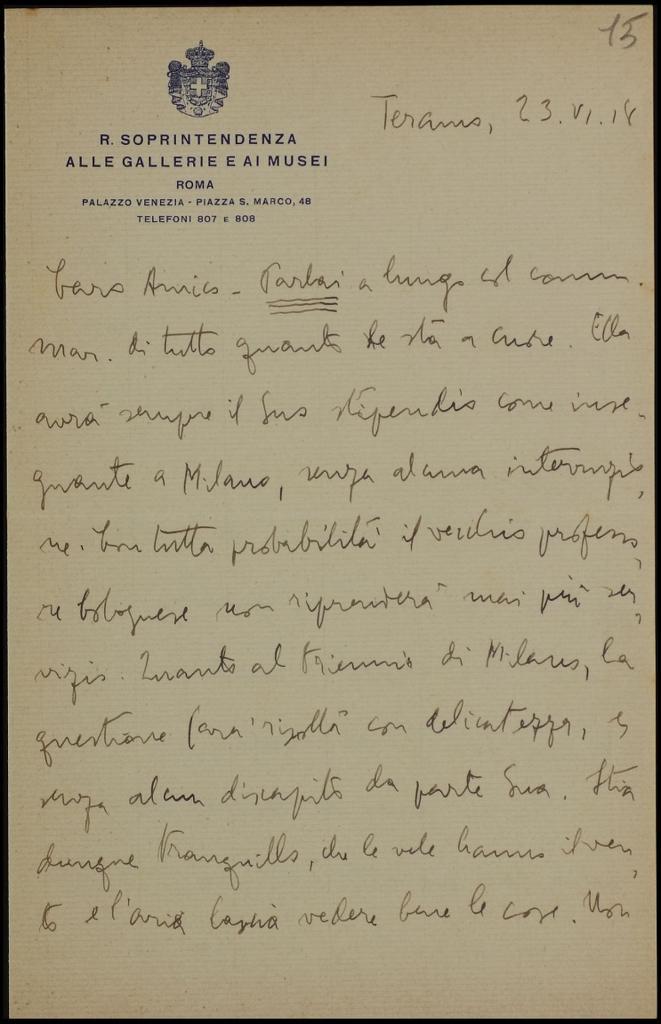 15
R. SOPRINTENDENZA
ALLE GALLERIE E AI MUSEI
ROMA
PALAZZO VENEZIA - PIAZZA S. MARCO, 48
TELEFONI 807 E 808
Teramo, 23.VI.14
Caro Amico - Parlai a lungo col comm.
Mar. di tutto quanto Le stà a cuore. Ella
avrà sempre il Suo stipendio come inse-
gnante a Milano, senza alcuna interruzio,
ne. Con tutta probabilità il vecchio professo,
re bolognese non riprenderà mai più ser,
vizio. Quanto al triennio di Milano, la
questione sarà risolta con delicatezza, e
senza alcun discapito da parte Sua. Stia
dunque tranquillo, che le vele hanno il ven,
to e l'aria lascia vedere bene le cose. Non